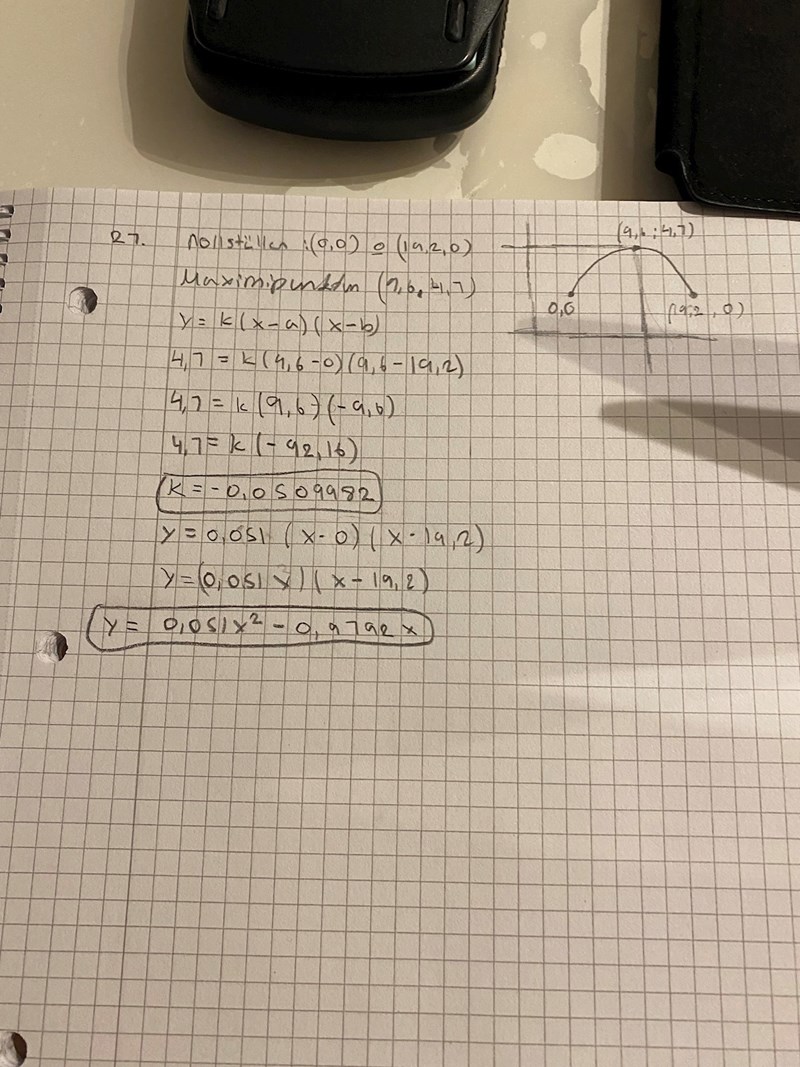 27. Nollställen: (0,0) o (19,2,0)
Maximipunkten (9,6, 4,7)
y = k(x-a)(x-b)
4,7 = k(9,6-0)(9,6-19,2)
4,7 = k(9,6)(-9,6)
4,7 = k(-92,16)
k = -0,0509982
y = 0,051 (x-0)(x-19,2)
y = (0,051x)(x-19,2)
y = 0,051x² - 0,9792x
(9,6;4,7)
0,0
(19,2, 0)